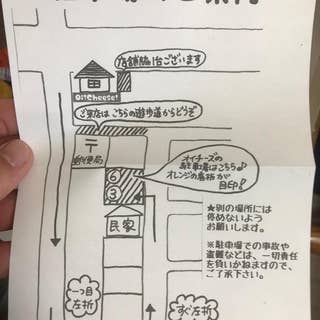 店舗脇1台ございます
Oh!Cheese!
ご来店はこちらの遊歩道からどうぞ
〒
郵便局
オイチーズの
駐車場はこちら♪
オレンジの看板が
目印!
⑥
③
民家
★別の場所には
停めないよう
お願いします。
※駐車場での事故や
盗難などは、一切責任
を負いかねますので、
ご了承下さい。
一つ目
左折
すぐ左折